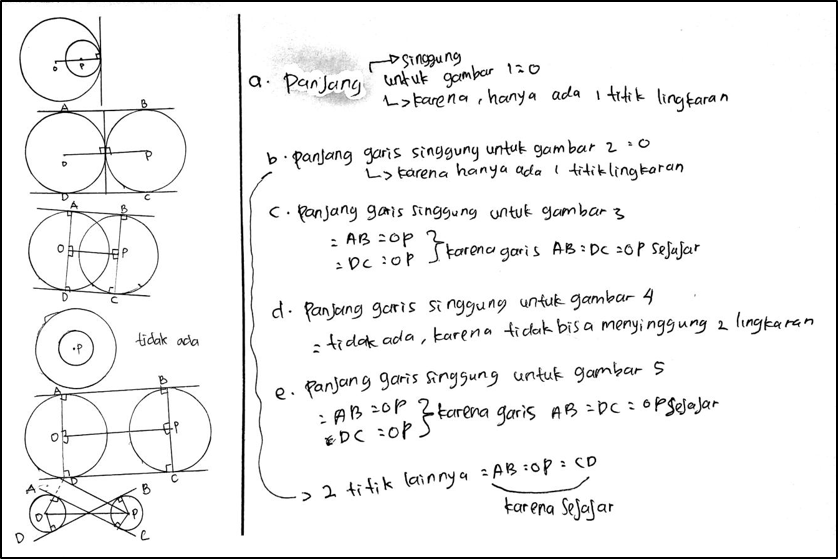 O P
A B
O P
D C
A B
O P
D C
P tidak ada
A B
O P
D C
A B
O P
D C
a. Panjang singgung untuk gambar 1=0
↳ karena, hanya ada 1 titik lingkaran
b. panjang garis singgung untuk gambar 2 = 0
↳ karena hanya ada 1 titik lingkaran
c. Panjang garis singgung untuk gambar 3
= AB = OP
= DC = OP } karena garis AB = DC = OP sejajar
d. Panjang garis singgung untuk gambar 4
= tidak ada, karena tidak bisa menyinggung 2 lingkaran
e. Panjang garis singgung untuk gambar 5
= AB = OP
= DC = OP } karena garis AB = DC = OP sejajar
→ 2 titik lainnya = AB = OP = CD
karena sejajar